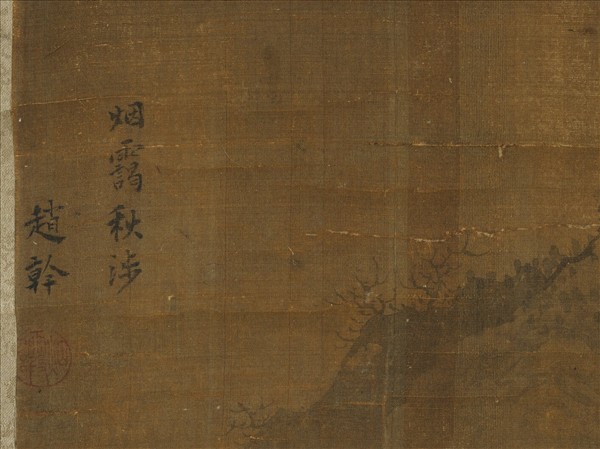 烟靄秋涉
趙幹